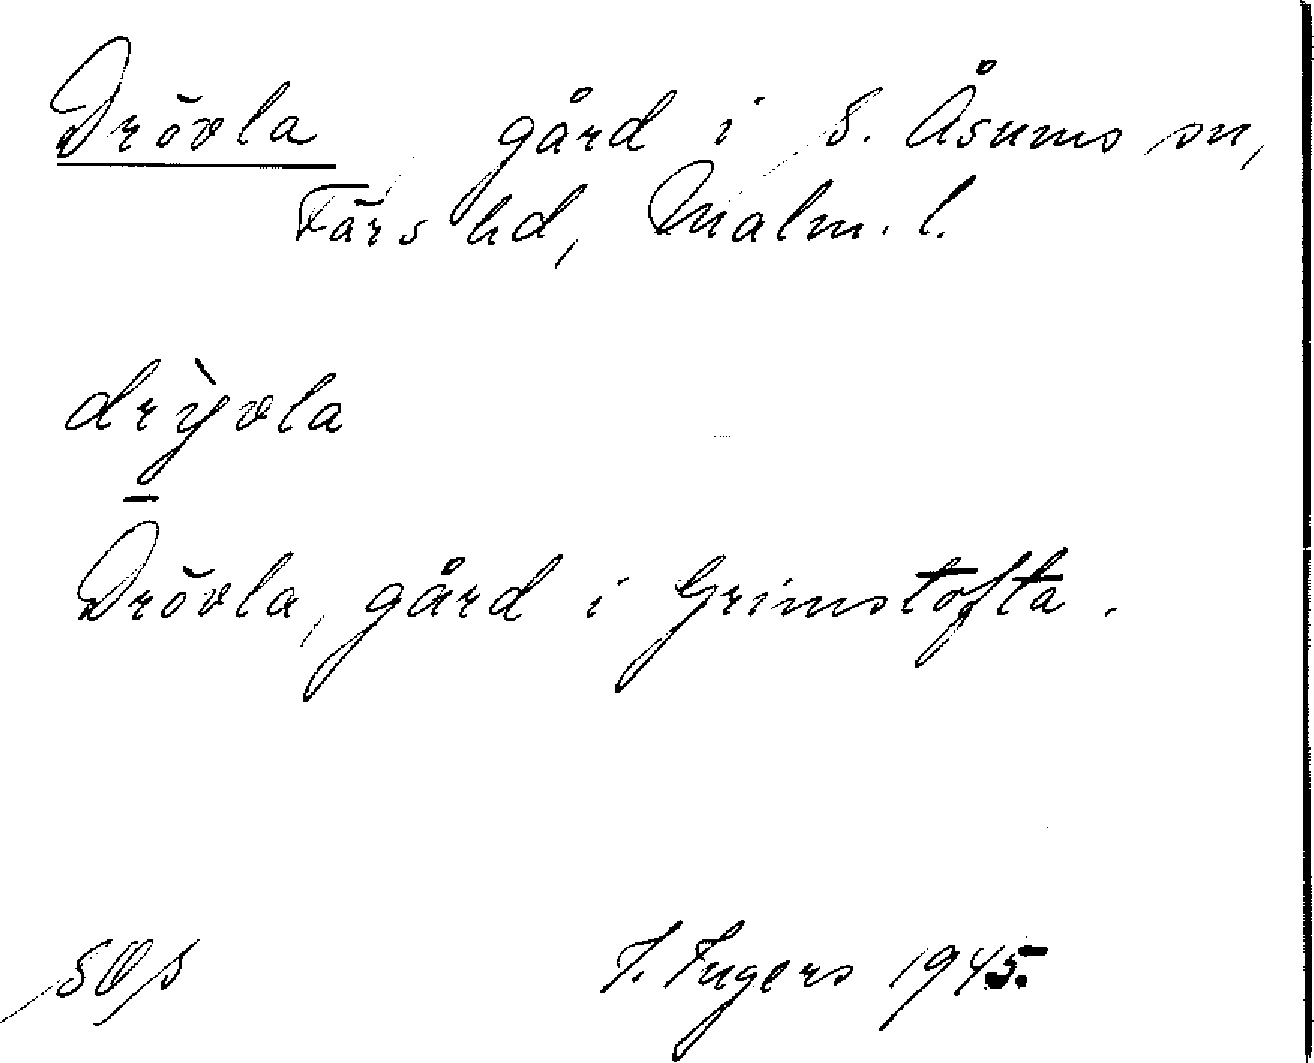 Drövla gård i S. Åsums sn,
Färs hd, Malm. l.
drỳvla
Drövla, gård i Grimstofta.
I. Ingers 1945.